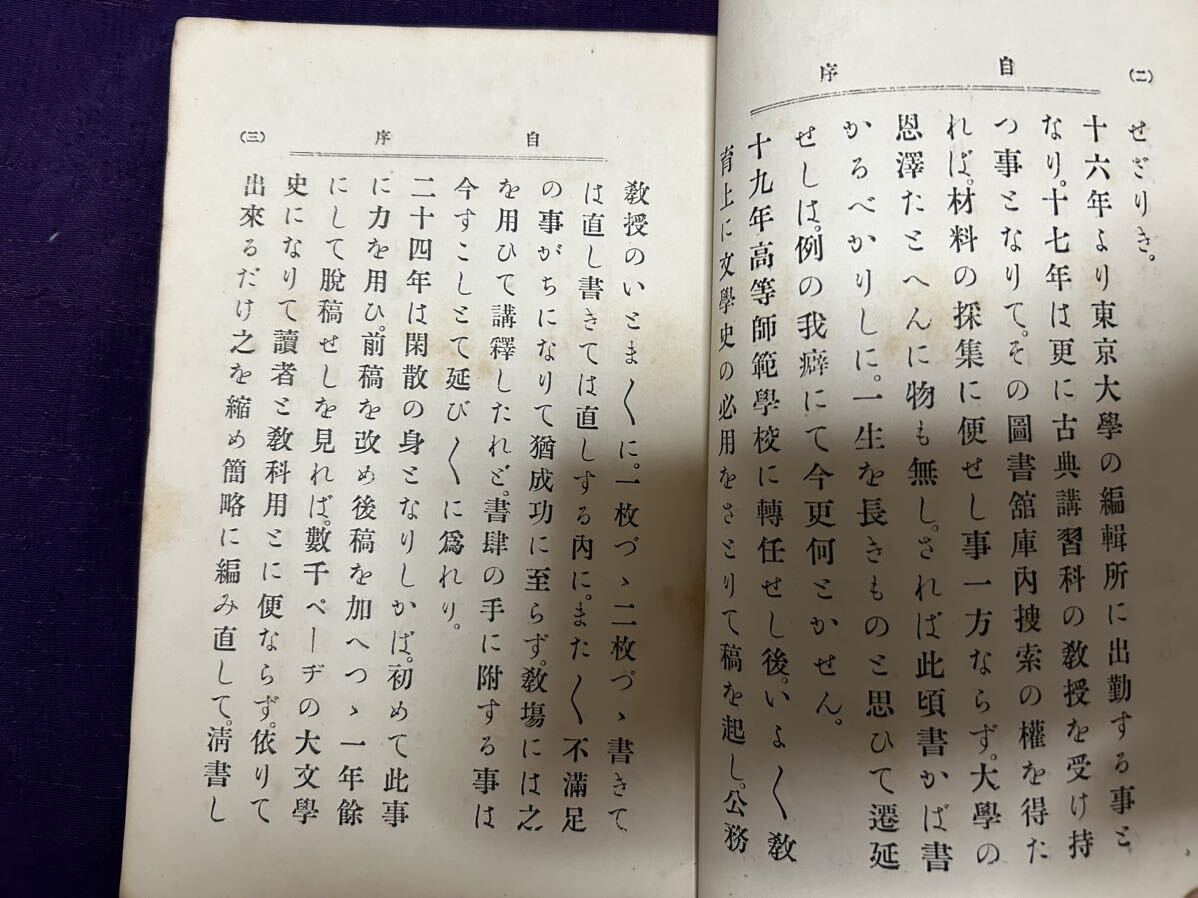 (二)
自序
せざりき。
十六年より東京大學の編輯所に出勤する事と
なり。十七年は更に古典講習科の教授を受け持
つ事となりて。その圖書舘庫內捜索の權を得た
れば。材料の採集に便せし事一方ならず。大學の
恩澤たとへんに物も無し。されば此頃書かば書
かるべかりしに。一生を長きものと思ひて遷延
せしは。例の我癖にて今更何とかせん。
十九年高等師範學校に轉任せし後。いよ〱敎
育上に文學史の必用をさとりて稿を起し。公務
自序
(三)
敎授のいとま〱に。一枚づゝ二枚づゝ書きて
は直し書きては直しする內に。また〱不滿足
の事がちになりて猶成功に至らず。敎塲には之
を用ひて講釋したれど。書肆の手に附する事は
今すこしとて延び〱に爲れり。
二十四年は閑散の身となりしかば。初めて此事
に力を用ひ。前稿を改め後稿を加へつゝ一年餘
にして脫稿せしを見れば。數千ページの大文學
史になりて讀者と敎科用とに便ならず。依りて
出來るだけ之を縮め簡略に編み直して。淸書し